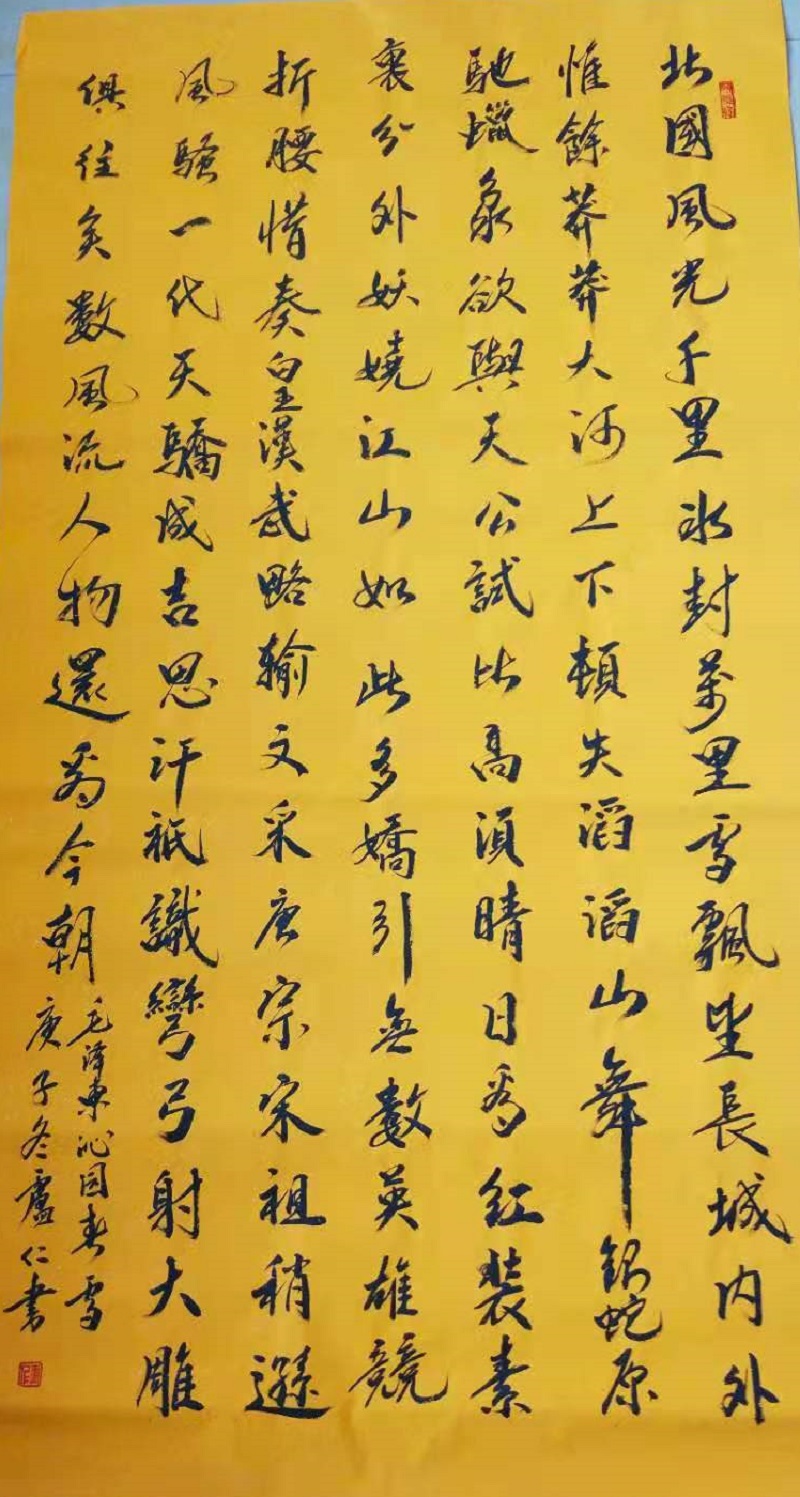 北國風光千里冰封萬里雪飄望長城内外
惟餘莽莽大河上下頓失滔滔山舞銀蛇原
馳蠟象欲與天公試比高須晴日看紅裝素
裹分外妖嬈江山如此多嬌引無數英雄競
折腰惜秦皇漢武略輸文采唐宗宋祖稍遜
風騷一代天驕成吉思汗祇識彎弓射大雕
俱往矣數風流人物還看今朝
毛泽東沁园春雪
庚子冬盧仁書